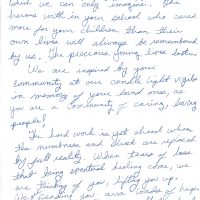 what we can only "imagine". The
heroes with in your person who cared
more for your children than their
own lives will always be remembered
by us. The precious young lives lost...
We are inspired by your
community at our candle light vigils
in memory of your loved ones, as
you are a community of caring, loving
people!
The hard work is yet ahead when
the numbness and shock are replaced
by full reality. When tears of loss
that bring eventual healing come, we
are thinking of you, lifting you up.
We're sending you, and